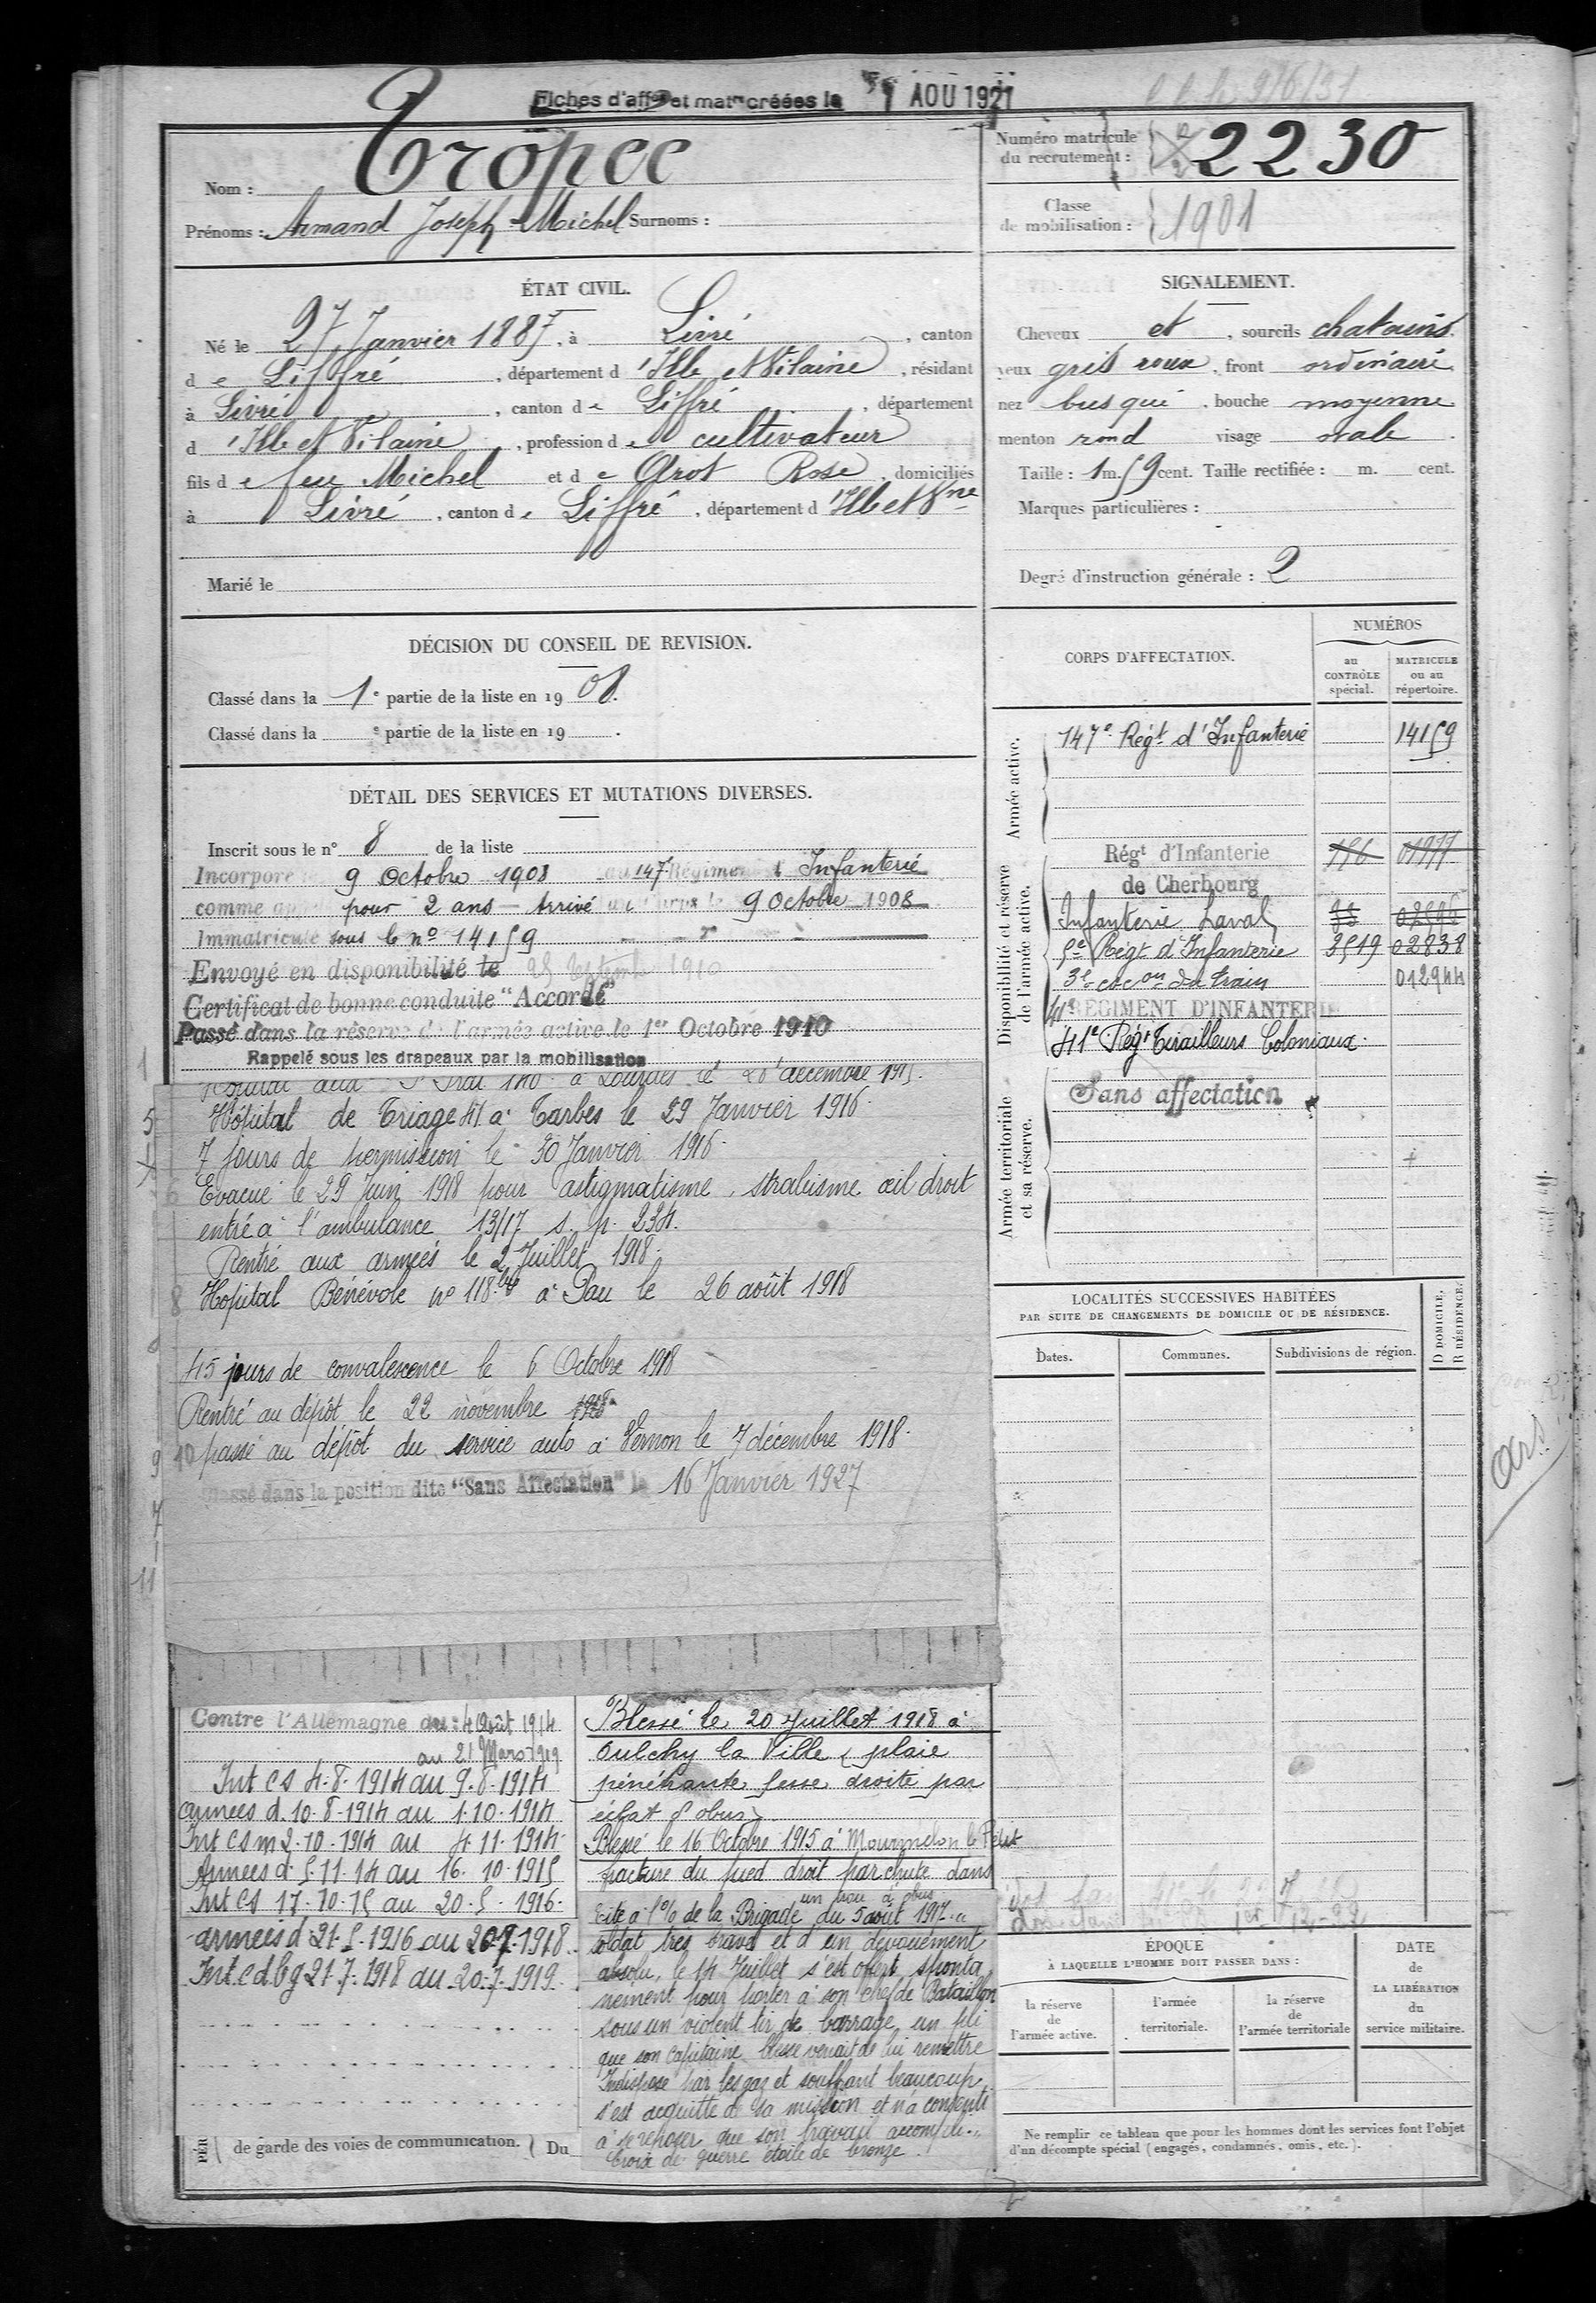 Fiches d'aff et mat créées le 1 AOU 1921
Nom : Tropée
Prénoms : Armand Joseph Michel Surnoms :
Numéro matricule
du recrutement : 2230
Classe
de mobilisation : 1901
ÉTAT CIVIL.
Né le 27 Janvier 1887, à Livré, canton
de Liffré, département d'Ille et Vilaine, résidant
à Livré, canton de Liffré, département
d'Ille et Vilaine, profession de cultivateur
fils de feu Michel et de Arot Rose, domiciliés
à Livré, canton de Liffré, département d'Ille et Vne
Marié le
SIGNALEMENT.
Cheveux et, sourcils chatains.
yeux gris roux, front ordinaire
nez busqué, bouche moyenne
menton rond visage ovale.
Taille : 1 m. 59 cent. Taille rectifiée : m. cent.
Marques particulières :
Degré d'instruction générale : 2
DÉCISION DU CONSEIL DE REVISION.
Classé dans la 1e partie de la liste en 1908.
Classé dans la e partie de la liste en 19 .
DÉTAIL DES SERVICES ET MUTATIONS DIVERSES.
Inscrit sous le n° 8 de la liste
Incorporé le 9 Octobre 1908 au 147 Régiment d'Infanterie
comme appelé pour 2 ans - Arrivé au corps le 9 Octobre 1908
Immatriculé sous le no 14159
Envoyé en disponibilité le 25 Septembre 1910
Certificat de bonne conduite "Accordé"
Passé dans la réserve de l'armée active le 1er Octobre 1910
Rappelé sous les drapeaux par la mobilisation
à Lourdes le décembre 1915.
Hôpital de Triage 41 à Tarbes le 29 Janvier 1916.
7 jours de permission le 30 Janvier 1916.
Evacué le 29 Juin 1918 pour astigmatisme, strabisme œil droit
entré à l'ambulance 13/17 s. p. 234.
Rentré aux armées le 2 Juillet 1918.
Hopital Bénévole no 118 bis à Pau le 26 août 1918
45 jours de convalescence le 6 Octobre 1918
Rentré au dépôt le 22 novembre 1918
passé au dépôt du service auto à Vernon le 7 décembre 1918.
Classé dans la position dite "Sans Affectation" le 16 Janvier 1927
CORPS D'AFFECTATION.
NUMÉROS
au
CONTRÔLE
spécial.
MATRICULE
ou au
répertoire.
Armée active.
147e Régt d'Infanterie 14159
Disponibilité et réserve
de l'armée active.
Régt d'Infanterie 156 01977
de Cherbourg
Infanterie Laval
5e Régt d'Infanterie 3519 02838
3e escon du train 012944
41e RÉGIMENT D'INFANTERIE
41e Régt Tirailleurs Coloniaux.
Armée territoriale
et sa réserve.
Sans affectation
LOCALITÉS SUCCESSIVES HABITÉES
PAR SUITE DE CHANGEMENTS DE DOMICILE OU DE RÉSIDENCE.
Dates.
Communes.
Subdivisions de région.
D DOMICILE.
R RÉSIDENCE.
Contre l'Allemagne du : 4 Août 1914
au 21 Mars 1919
Int CS 4-8-1914 au 9-8-1914
armées d. 10-8-1914 au 1-10-1914
Int CS m 2-10-1914 au 4-11-1914
Armées d. 5-11-14 au 16-10-1915
Int CS 17-10-15 au 20-5-1916
armées d 21-5-1916 au 20-7-1918
Int. c d. bg 21-7-1918 au 20-7-1919.
de garde des voies de communication. ( Du
Blessé le 20 Juillet 1918 à
Oulchy la Ville plaie
pénétrante fesse droite par
éclat d'obus
Blessé le 16 Octobre 1915 à Mourmelon le Petit
facture du pied droit par chute dans
un trou d'obus
Cité à l'o/ de la Brigade du 5 août 1917
soldat très brave et d'un dévouement
absolu, le 14 Juillet s'est offert sponta
nément pour porter à son chef de Bataillon
sous un violent tir de barrage un pli
que son capitaine blessé venait de lui remettre
Indisposé par les gaz et souffrant beaucoup
s'est acquitté de sa mission et n'a consenti
à se reposer que son travail accompli.
Croix de guerre étoile de bronze.
ÉPOQUE
À LAQUELLE L'HOMME DOIT PASSER DANS :
la réserve
de
l'armée active.
l'armée
territoriale.
la réserve
de
l'armée territoriale
DATE
de
LA LIBÉRATION
du
service militaire.
Ne remplir ce tableau que pour les hommes dont les services font l'objet
d'un décompte spécial (engagés, condamnés, omis, etc.).